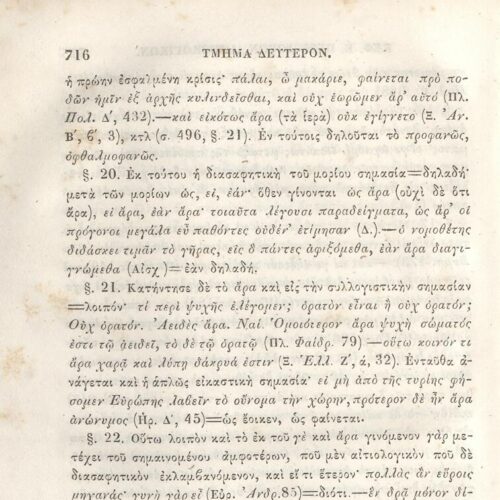 716 ΤΜΗΜΑ ΔΕΥΤΕΡΟΝ.
ἡ πρώην ἐσφαλμένη κρίσις· πάλαι, ὦ μακάριε, φαίνεται πρὸ πο-
δῶν ἡμῖν ἐξ ἀρχῆς κυλινδεῖσθαι, καὶ οὐχ ἑωρῶμεν ἄρ' αὐτό (Πλ.
Πολ. Δ΄, 432).—καὶ εἰκότως ἄρα (τὰ ἱερὰ) οὐκ ἐγίγνετο (Ξ. Ἀν.
Β΄, ϐ΄, 3), κτλ (σ. 496, §. 21). Ἐν τούτοις δηλοῦται τὸ προφανῶς,
ὀφθαλμοφανῶς.
§. 20. Ἐκ τούτου ἡ διασαφητικὴ τοῦ μορίου σημασία=δηλαδή·
μετὰ τῶν μορίων ὡς, εἰ, ἐάν· ὅθεν γίνονται ὡς ἄρα (οὐχὶ δὲ ὅτι
ἄρα), εἰ ἄρα, ἐὰν ἄρα· τοιαῦτα λέγουσι παραδείγματα, ὡς ἄρ' οἱ
πρόγονοι μεγάλα εὖ παθόντες οὐδέν' ἐτίμησαν (Δ.).—ὁ νομοθέτης
διδάσκει τιμᾶν τὸ γῆρας, εἰς ὃ πάντες ἀφιξόμεθα, ἐὰν ἄρα διαγι-
γνώμεθα (Αἰσχ)=ἐὰν δηλαδή.
§. 21. Κατήντησε δὲ τὸ ἄρα καὶ εἰς τὴν συλλογιστικὴν σημασίαν
=λοιπόν· τί περὶ ψυχῆς ἐλέγομεν; ὁρατὸν εἶναι ἢ οὐχ ὁρατόν;
Οὐχ ὁρατόν. Ἀειδὲς ἄρα. Ναί. Ὁμοιότερον ἄρα ψυχὴ σώματός
ἐστι τῷ ἀειδεῖ, τὸ δὲ τῷ ὁρατῷ (Πλ. Φαίδρ. 79) —οὕτω κοινόν τι
ἄρα χαρᾷ καὶ λύπῃ δάκρυά ἐστιν (Ξ. Ἑλλ. Ζ΄, ά, 32). Ἐνταῦθα ἀ-
νάγεται καὶ ἡ ἁπλῶς εἰκαστικὴ σημασία· εἰ μὴ ἀπὸ τῆς τυρίης φή-
σομεν Εὐρώπης λαβεῖν τὸ οὔνομα τὴν χώρην, πρότερον δὲ ἦν ἄρα
ἀνώνυμος (Ἡρ. Δ΄, 45)=ὡς ἔοικεν, ὡς φαίνεται.
§. 22. Οὕτω λοιπὸν καὶ τὸ ἐκ τοῦ γὲ καὶ ἄρα γινόμενον γὰρ με-
τέχει τοῦ σημαινομένου ἀμφοτέρων, ποῦ μὲν αἰτιολογικὸν ποῦ δὲ
διασαφητικὸν ἐκλαμβανόμενον, καὶ εἴ τι ἕτερον· πολλὰς ἂν εὕροις
μηχανάς· γυνὴ γὰρ εἶ (Εὐρ. Ἀνδρ. 85)=διότι.—ἐν δρᾷ μόνον δί-